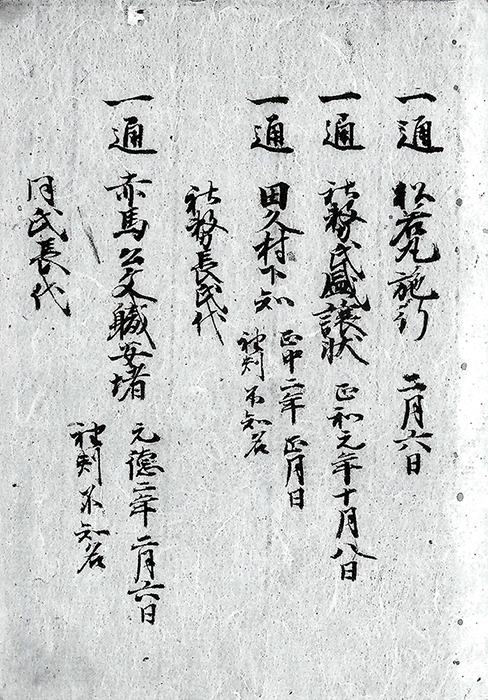 一通 松若丸施行 二月六日
一通 社務氏盛譲状 正和元年十月八日
一通 田久村下知 正中二年正月日
袖判不知名
社務長氏代
一通 赤馬公文職安堵 元徳二年二月六日
袖判不知名
同氏長代